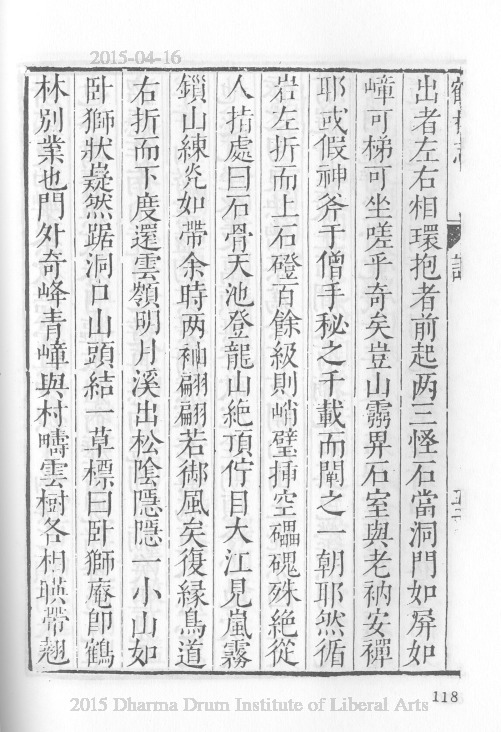 2015-04-16
出者左右相環抱者前起两三怪石當洞門如屏如
嶂可梯可坐嗟乎奇矣豈山靈畀石室與老衲安禪
耶或假神斧于僧手秘之千載而闡之一朝耶然循
岩左折而上石磴百餘級則峭壁揷空礌磈殊絶從
人指處曰石骨天池登龍山絶頂佇目大江見嵐霧
鎖山練光如帶余時两袖翩翩若御風矣復緣鳥道
右折而下度還雲嶺明月溪出松陰隱隱一小山如
卧獅狀嶷然踞洞口山頭結一草標曰卧獅庵即鶴
林別業也門外奇峰青嶂與村疇雲樹各相暎帶翹
118
2015 Dharma Drum Institute of Liberal Arts